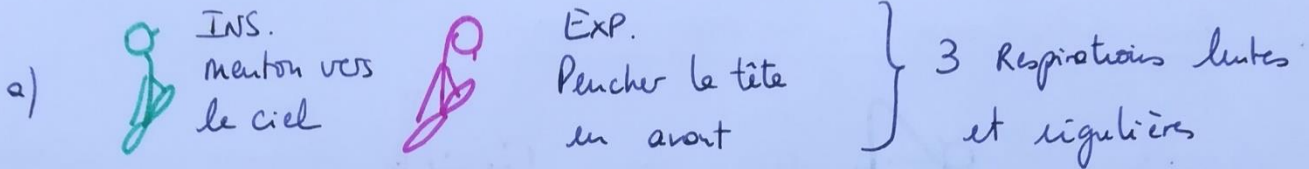 a)
INS.
menton vers
le ciel
EXP.
Pencher la tête
en avant
3 Respirations lentes
et régulières